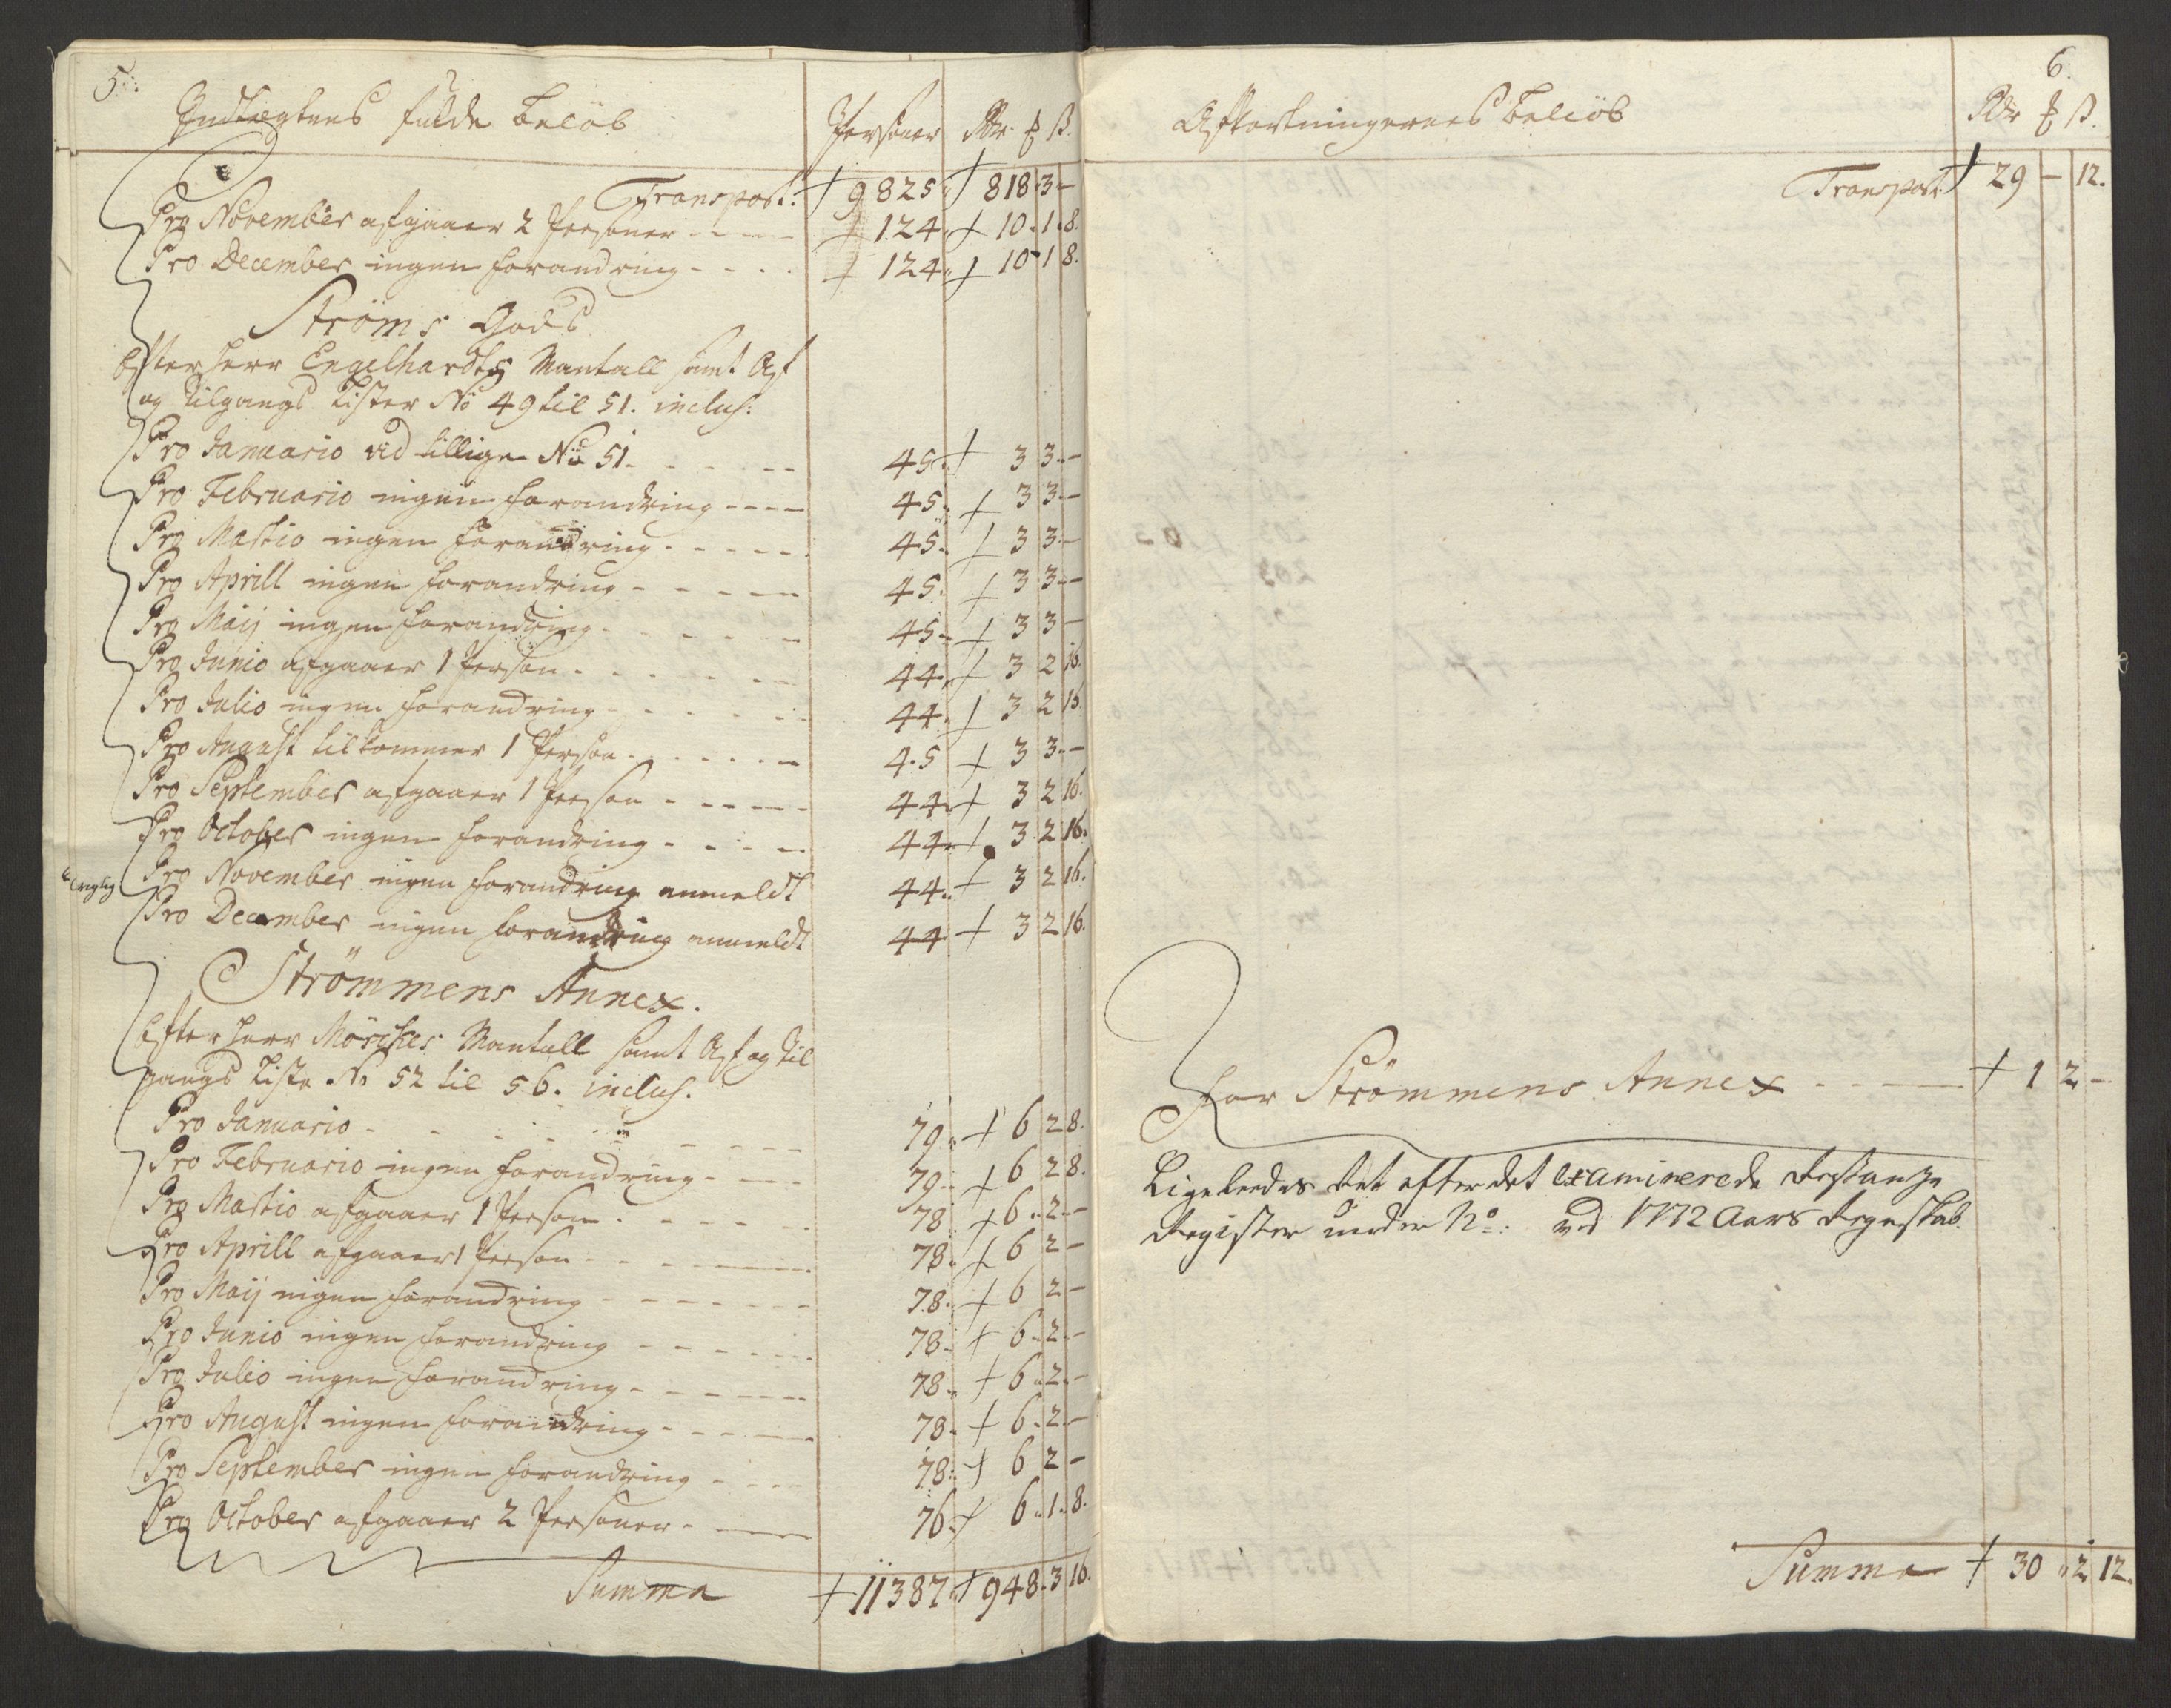 5.
Indtægtens fulde Beløb Personer Rdr. ƒ ß.
Transport. 9825 818 3 -
Pro November afgaaer 2 Personer 124 10 1 8.
Pro December ingen forandring 124 10 1 8.
Ströms Gods
Efter Herr Engelhardts Mantall samt Af
og Tilgangs Lister No 49 til 51. inclus:
Pro Januario ved tillige No 51 45 3 3 -
Pro Februario ingen forandring 45 3 3 -
Pro Martio ingen forandring 45 3 3 -
Pro Aprill ingen forandring 45 3 3 -
Pro Maij ingen forandring 45 3 3 -
Pro Junio afgaaer 1 Person 44 3 2 16.
Pro Julio ingen forandring 44 3 2 16.
Pro August tilkommer 1 Person 45 3 3 -
Pro September afgaaer 1 Person 44 3 2 16.
Pro October ingen forandring 44 3 2 16.
Pro November ingen forandring anmeldt 44 3 2 16.
Pro December ingen forandring anmeldt 44 3 2 16.
Strömmens Annex.
Efter Herr Mörches Mantall samt Af og Til
gangs Liste No 52 til 56. inclus.
Pro Januario 79 6 2 8.
Pro Februario ingen forandring 79 6 2 8.
Pro Martio afgaaer 1 Person 78 6 2 -
Pro Aprill afgaaer 1 Person 78 6 2 -
Pro Maij ingen forandring 78 6 2 -
Pro Junio ingen forandring 78 6 2 -
Pro Julio ingen forandring 78 6 2 -
Pro August ingen forandring 78 6 2 -
Pro September ingen forandring 78 6 2 -
Pro October afgaaer 2 Personer 76 6 1 8.
Summa 11387 948 3 16.
6.
Afkortningernes Beløb Rdr ƒ ß.
Transport 29 - 12.
for Strömmens Annex 1 2 -
Ligeledes det efter det examinerede Restanze
Register under No: ved 1772 Aars Regnskab.
Summa 30 2 12.